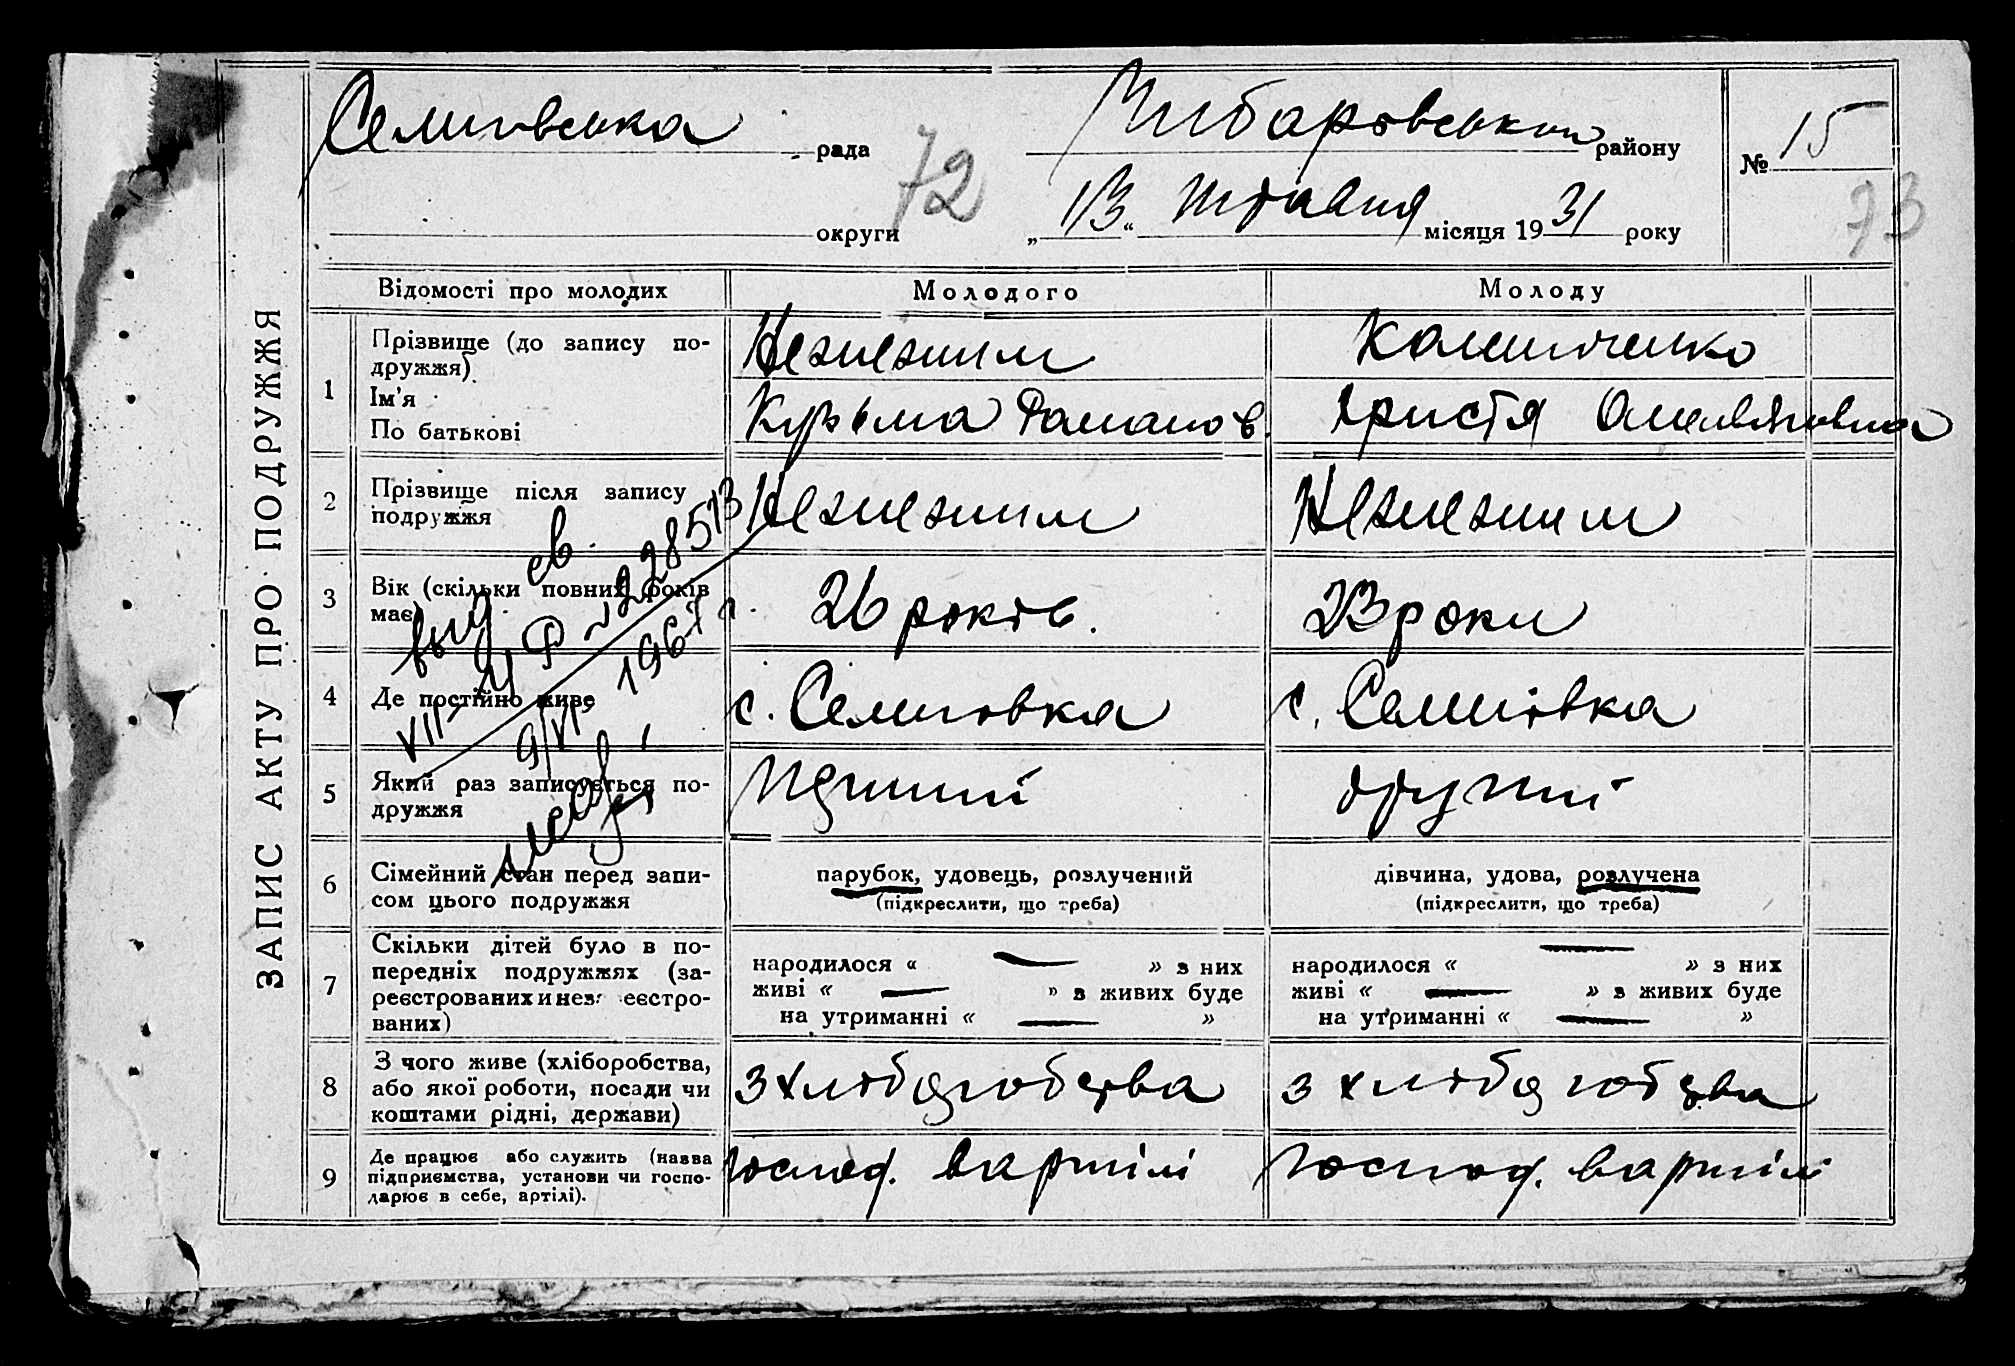 ЗАПИС АКТУ ПРО ПОДРУЖЖЯ
Семиовська рада
Чубаровський району
№ 15
72
73
округи
„13“ травня місяця 1931 року
Відомості про молодих
Молодого
Молоду
1
Прізвище (до запису подружжя)
Ім'я
По батькові
Незнезним
Калиниченко
Кузьма Романов.
Христя Омельяновна
2
Прізвище після запису
подружжя
Незнезним
Незнезним
3
Вік (скільки повних років
має)
26 років.
23 роки
4
Де постійно живе
с. Семиовка
с. Семиовка
5
Який раз записується по-
дружжя
перший
другий
6
Сімейний стан перед запи-
сом цього подружжя
парубок, удовець, розлучений
(підкреслити, що треба)
дівчина, удова, розлучена
(підкреслити, що треба)
7
Скільки дітей було в по-
передніх подружжях (за-
реєстрованих и нез еєстро-
ваних)
народилося « — » з них
живі « — » з живих буде
на утриманні « — »
народилося « — » з них
живі « — » з живих буде
на утриманні « — »
8
З чого живе (хліборобства,
або якої роботи, посади чи
коштами рідні, держави)
з хліборобства
з хліборобства
9
Де працює або служить (назва
підприємства, установи чи госпо-
дарює в себе, артілі).
господ. в артілі
господ. в артілі
выд. св.
VII-УР № 228513
9/VI 1967 г.